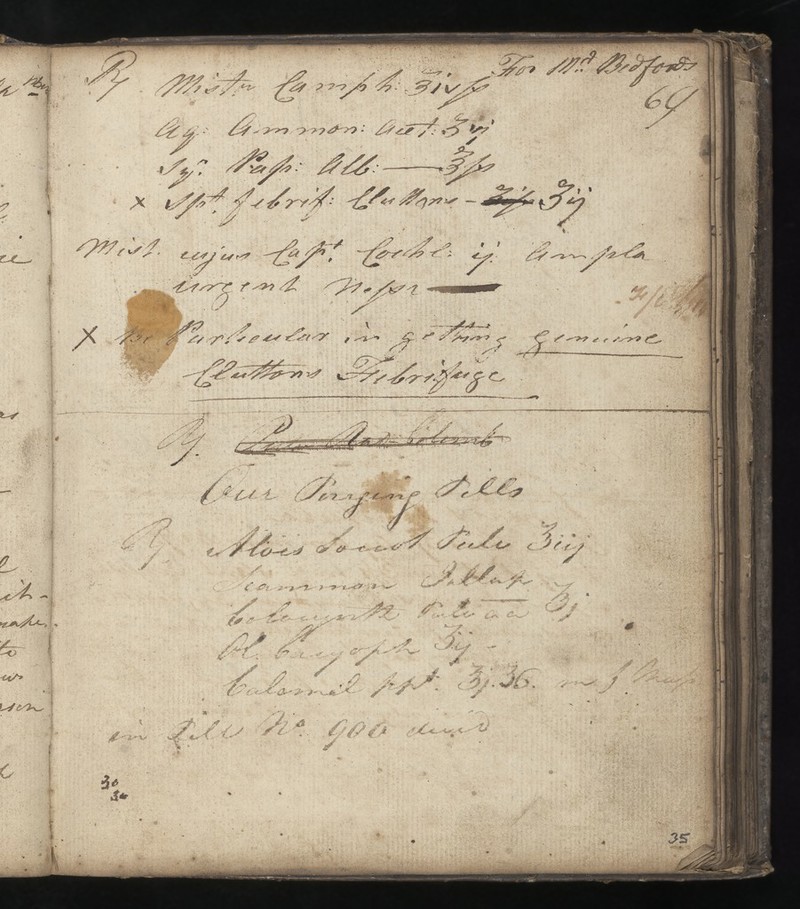 ℞ Mistu Camph: ℥iv ſs For Mrs Bedfords
69
Aq: Ammon: Acet: ℥ij
Syr. Pap: Alb: — ℥ſs
x Spt. febrif: Cluttons — ʒij
Mist. cujus Capt. Cochl: ij. Ampla
urgent
X Be Particular in getting genuine
Cluttons Febrifuge
℞.
Our Purging Pills
℞. Alois Soccot Pulv ℥iij
Scammon Jallap
Colocynth Pulv aa ℥j
Ol. Caryoph ʒij -
Calomel ppt. ℥j. 36. m. f. Mass
in Pill No. 900 divid
30
30
35